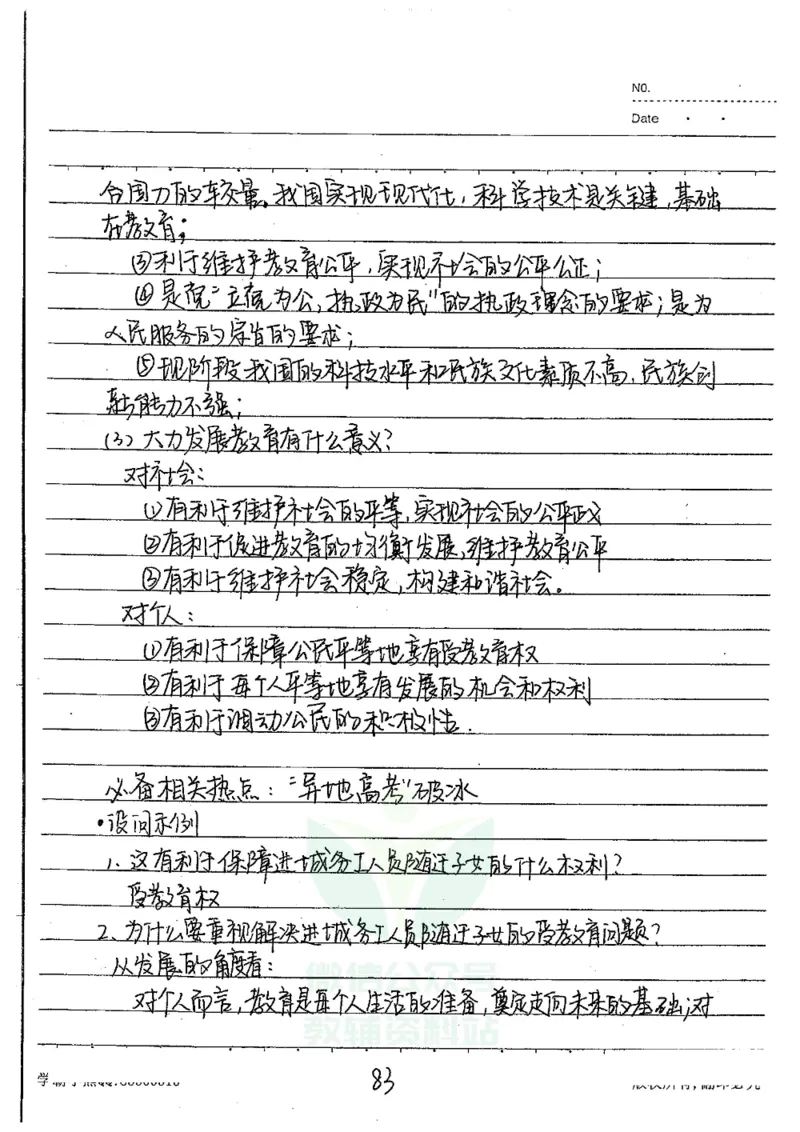 NO.
Date
合国力的较量。我国实现现代化，科学技术是关键，基础
在教育；
③利于维护教育公平，实现社会的公平公正；
④是党"立党为公，执政为民"的执政理念的要求；是为
人民服务的宗旨的要求；
⑤现阶段我国的科技水平和民族文化素质不高，民族创
新能力不强；
(3) 大力发展教育有什么意义？
对社会：
①有利于维护社会的平等，实现社会的公平正义
②有利于促进教育的均衡发展，维护教育公平
③有利于维护社会稳定，构建和谐社会。
对个人：
①有利于保障公民平等地享有受教育权
②有利于每个人平等地享有发展的机会和权利
③有利于调动公民的积极性．
必备相关热点："异地高考"破冰
•设问示例
1. 这有利于保障进城务工人员随迁子女的什么权利？
受教育权
2、为什么要重视解决进城务工人员随迁子女的受教育问题？
从发展的角度看：
微信公众号
对个人而言，教育是每个人生活的准备，奠定走向未来的基础；对
教辅资料站
83